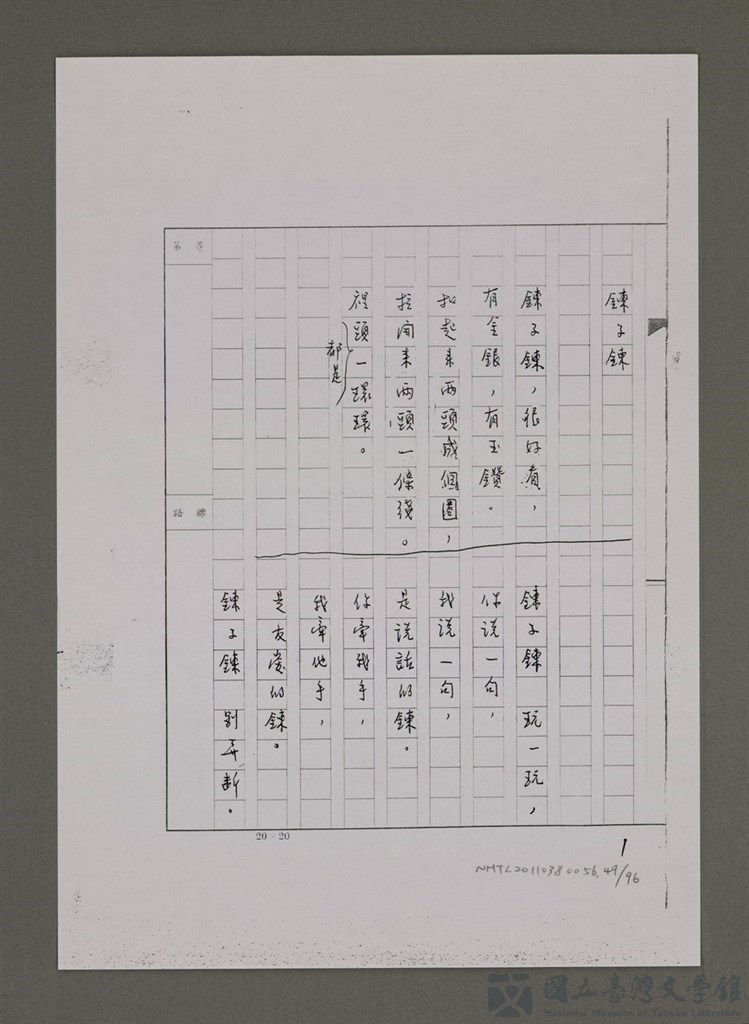 鍊子鍊
鍊子鍊，很好看，
有金銀，有玉鑽。
扣起來兩頭成個圈，
拉開來兩頭一條綫。
裡頭一環環。
都是
鍊子鍊　玩一玩，
你說一句，
我說一句，
是說話的鍊。
你牽我手，
我牽他手，
是友愛的鍊。
鍊子鍊　別弄斷。
第
20×20
1
NMTL20110380056,49/96
國立臺灣文學館
National Museum of Taiwan Literature